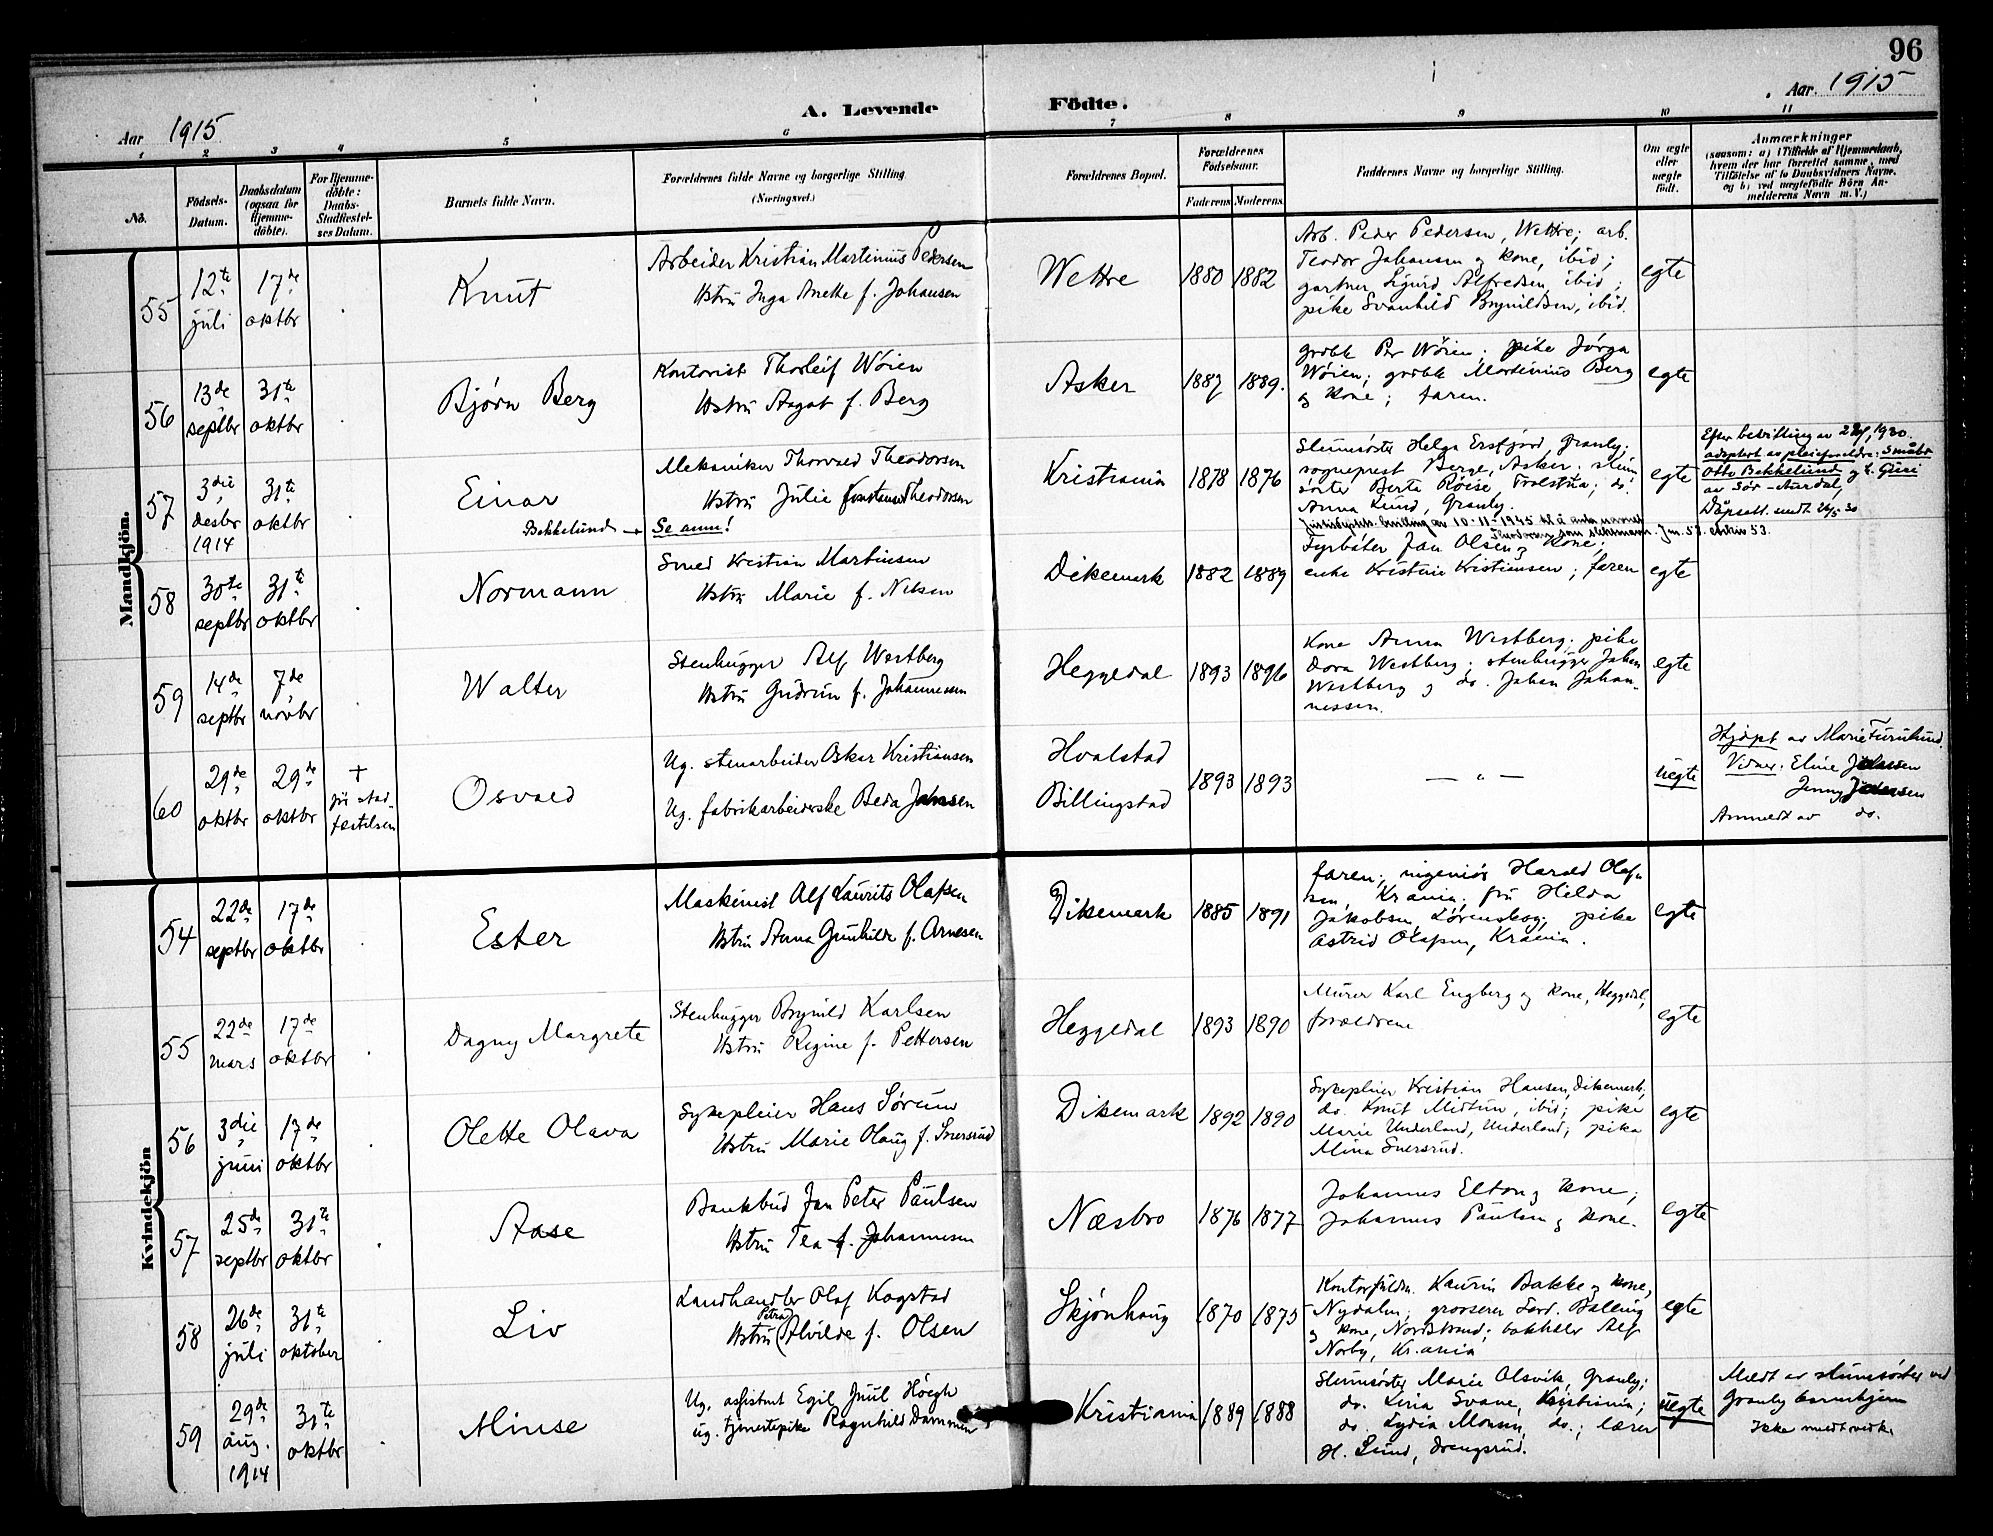 96
Aar 1915
A. Levende Födte.
Aar 1915
1 2 3 4 5 6 7 8 9 10 11
No.
Födsels-Datum.
Daabsdatum (ogsaa for Hjemmedöbte).
For Hjemmedöbte: Daabs-Stadfestelses Datum.
Barnets fulde Navn.
Forældrenes fulde Navne og borgerlige Stilling
(Næringsvei.)
Forældrenes Bopæl.
Forældrenes Födselsaar.
Faderens Moderens
Faddernes Navne og borgerlige Stilling.
Om ægte eller uægte födt.
Anmærkninger
(saasom: a) i Tilfælde af Hjemmedaab,
hvem der har forrettet samme, med
Tilföielse af to Daabsvidners Navne,
og b) ved uægtefödte Börn An-
melderens Navn m. V.)
Mandkjön.
55
12te juli
17de oktbr
Knut
Arbeider Kristian Martinius Pedersen
Hstru Inga Anette f. Johansen
Wettre
1880 1882
Arb. Peder Pedersen, Wettre; arb.
Teodor Johansen og kone, ibid;
gartner Sigurd Alfredsen, ibid;
pike Svanhild Brynildsen, ibid.
egte
56
13de septbr
31te oktbr
Bjørn Berg
Kontorist Thorleif Wöien
Hstru Aagot f. Berg
Asker
1887 1889.
grdbr Per Wöien; pike Jörga
Wöien; grdbr Martinius Berg
og kone; faren.
egte
57
3die desbr 1914
31te oktbr
Einar
Bekkelund
Mekaniker Thorvald Theodorsen
Hstru Julie Konstanse Theodorsen
Se anm!
Kristiania
1878 1876
Slumsöster Helga Ersfjord, Granly;
sogneprest Berge, Asker; slum
söster Berta Röise, Trolstua; do.
Anna Lund, Granly.
egte
Efter bevilling av 1930
adoptert av pleieforeldre: Småbr
Otto Bekkelund og h. Guri
av Sør-Aurdal,
Dåpsatt. utst. 26/5-30
bevilling av 10-11-1945 til å anta navnet
Theodorsen som slektsnavn. Jnr. 57.
58
30te septbr
31te oktbr
Normann
Smed Kristian Martinsen
Hstru Marie f. Nilsen
Dikemark
1882 1889
Fyrböter Jan Olsen og kone;
enke Kristine Kristiansen; faren
egte
59
14de septbr
7de novbr
Walter
Stenhugger Alf Westberg
Hstru Gudrun f. Johannesen
Heggedal
1893 1896
Kone Anna Westberg; pike
Dora Westberg; stenhugger Johan
Westberg og do. Johan Johan-
nessen.
egte
60
29de oktbr
29de oktbr
+ för stad-
festelsen
Osvald
Ug. stenarbeider Oskar Kristiansen
Ug. fabrikarbeiderske Beda Jansen
Hvalstad
Billingstad
1893 1893
— " —
uegte
Hjdøpt av Marie Furulund.
Vidner: Eline
Jenny
Anmeldt av do.
Kvindekjön
54
22de septbr
17de oktbr
Ester
Maskinist Alf Laurits Olafsen
Hstru Anna Gunhild f. Arnesen
Dikemark
1885 1891
faren; ingeniör Harald Olaf-
sen, Krania; fru Hilda
Jakobsen Lörenskog; pike
Astrid Olafsen, Krania.
egte
55
22de mars
17de oktbr
Dagny Margrete
Stenhugger Brynild Karlsen
Hstru Regine f. Pettersen
Heggedal
1893 1890
Murer Karl Engberg og kone, Heggedal,
forældrene
egte
56
3die juni
17de oktbr
Olette Olava
Sykepleier Hans Sörum
Hstru Marie Olaug f. Snersrud
Dikemark
1892 1890
Sykepleier Kristian Hansen, Dikemark,
do. Knut Midtun, ibid; pike
Marie Underland, Underland; pike
Mina Snersrud.
egte
57
25de septbr
31te oktbr
Aase
Bankbud Jan Peter Paulsen
Hstru Tea f. Johannesen
Næsbro
1876 1877
Johannes Elton og kone;
Johannes Paulsen og kone.
egte
58
26de juli
31te oktober
Liv
Landhandler Olaf Kogstad
Petra
Hstru Alvilde f. Olsen
Skjönhaug
1870 1875
Kontorfuldm. Kaurin Bakke og kone,
Nydalen; grosserer Ferd. Balling
og kone, Nordstrand; bokholder Alf
Norby, Kr.ania
egte
59
29de aug. 1914
31te oktbr
Minse
Ug. assistent Egil Juul Höegh
ug. tjenestepike Ragnhild Dammen
Kristiania
1889 1888
Slumsöster Marie Olsvik, Granly;
do. Lina Svane, Kristiania;
do Lydia Monsen, do.; lærer
H. Lund, Drengsrud.
uegte
Meldt av slumsöster ved
Granly barnehjem
Ikke